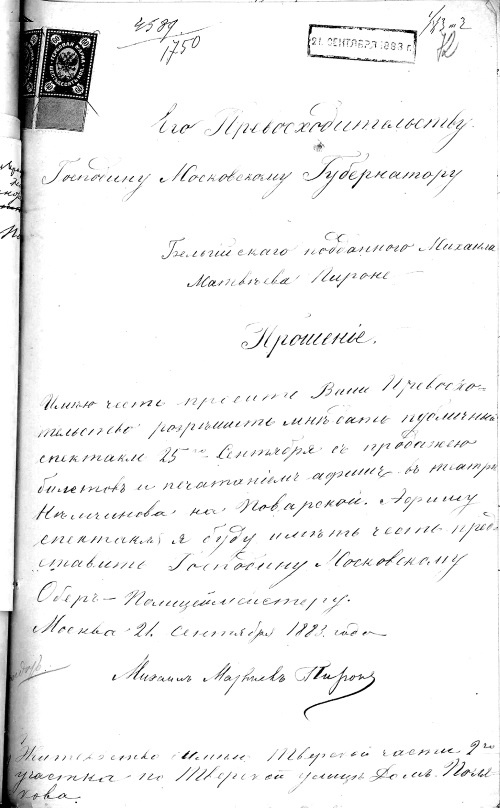 4589
1750
21. СЕНТЯБРЯ 1883 г.
Его Превосходительству
Господину Московскому Губернатору
Бельгійскаго подданнаго Михаила
Матвѣева Пироне
Прошеніе.
Имѣю честь просить Ваше Превосхо-
тельство разрѣшить мнѣ дать публичный
спектакль 25го Сентября съ продажею
билетовъ и печатаніемъ афишъ въ театрѣ
Нѣмчинова на Поварской. Афишу
спектакля я буду имѣть честь пред-
ставить Господину Московскому
Оберъ-Полицеймейстеру.
Москва 21. Сентября 1883. года
Михаилъ Матвѣевъ Пироне
Жительство имѣю Тверской части 2го
участка по Тверской улицѣ домъ Поля-
кова.